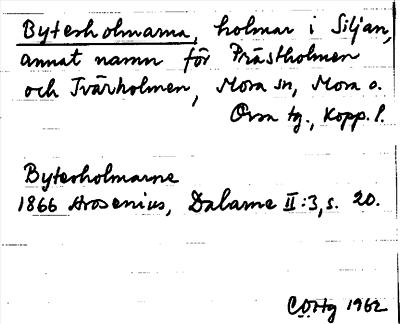 Byterholmarna, holmar i Siljan,
annat namn för Prästholmen
och Tvärholmen, Mora sn, Mora o.
Orsa tg., Kopp. l.
Byterholmarne
1866 Arosenius, Dalarne II:3, s. 20.
1962